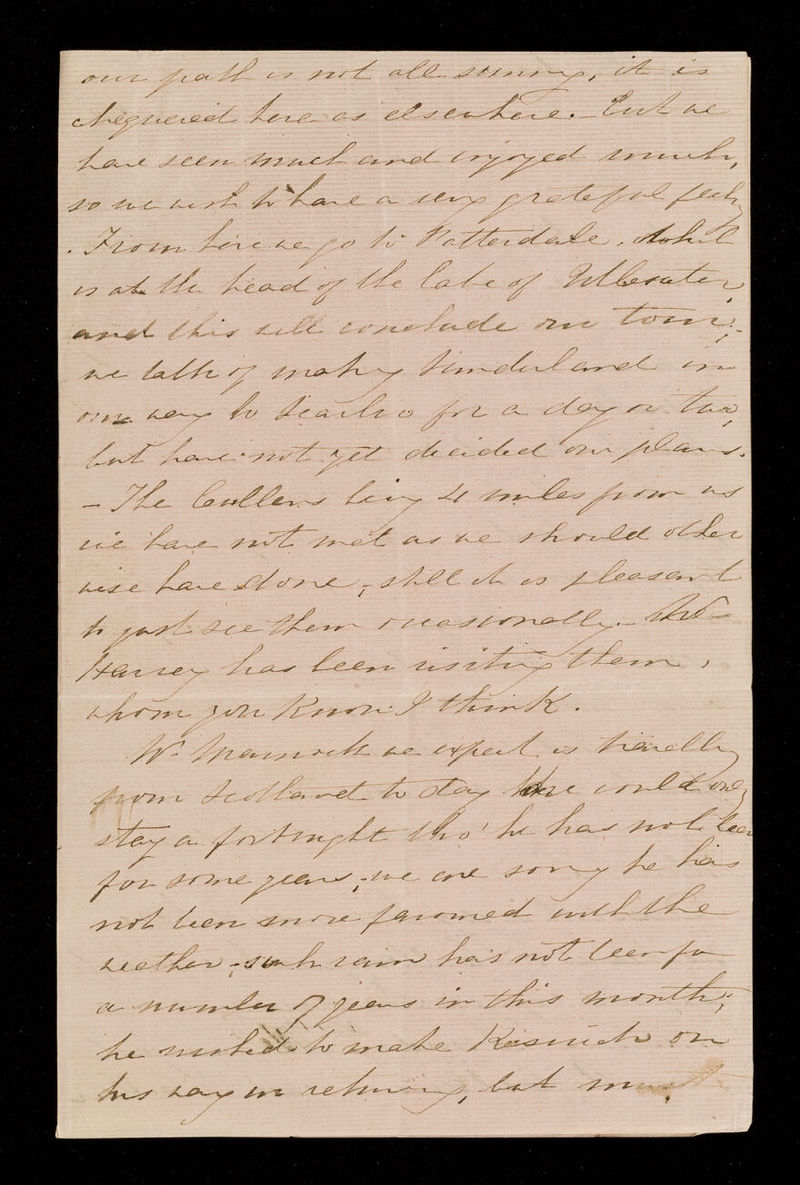 our path is not all sunny, it is
chequered here as elsewhere. – But we
have seen much and enjoyed much,
so we wish to have a very grateful feeling
. From here we go to Patterdale, which
is at the head of the lake of Ullswater,
and this will conclude our tour;
we talk of making Sunderland in
our way to for a day or two,
but have not yet decided our plans.
– The Cullens being 4 miles from us
we have not met as we should other
wise have done, still it is pleasant
to just see them occasionally. –
Harvey has been visiting them,
whom you know I think.
Wm we expect is travelling
from Scotland to day he could only
stay a fortnight tho' he has not been
for some years; we are sorry he has
not been more favored with the
weather; such rain has not been for
a number of years in this month;
he wished to make Keswick on
his way in returning, but